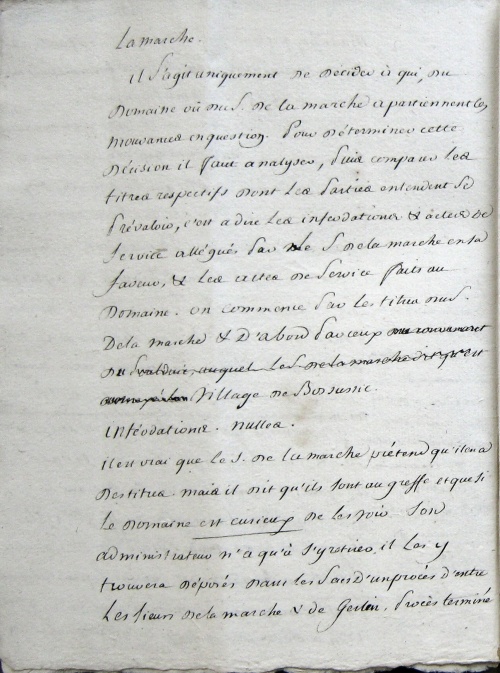 La marche.
il S'agit uniquement de décider à qui, du
Domaine où du S. de la marche apartiennent les
mouvances en question. Pour déterminer cette
décision il faut analyser, puis comparer les
titres respectifs dont les parties entendent se
prévaloir, c'est a dire les infeodations & actes de
Service allégués par le S. de la marche en sa
faveur, & les actes de Service faits au
Domaine. on commence par les titres du S.
De la marche & D'abord par ceux
du auquel le S. de la marche dit qu'est
Village de Bossussic.
inféodations. nulles.
il est vrai que le S. de la marche prétend qu'il en a
des titres mais il dit qu'ils sont au greffe et que si
le domaine est curieux de les voir Son
administrateur n'a qu'à s'y retirer, il les y
trouvera déposés dans les Sacs d'un procès d'entre
Les sieurs de la marche & de . procès terminé